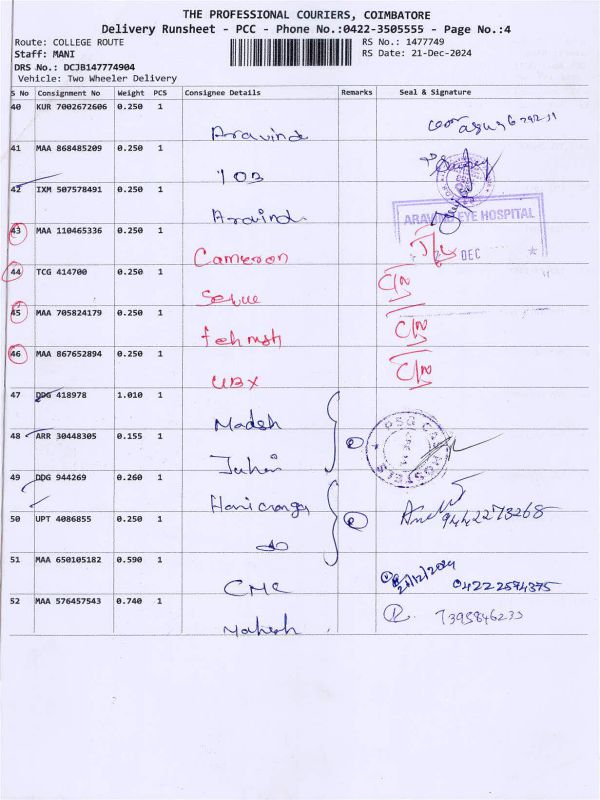 THE PROFESSIONAL COURIERS, COIMBATORE
Delivery Runsheet - PCC - Phone No.:0422-3505555 - Page No.:4
Route: COLLEGE ROUTE
RS No.: 1477749
Staff: MANI
RS Date: 21-Dec-2024
DRS No.: DCJB147774904
Vehicle: Two Wheeler Delivery
S No Consignment No Weight PCS Consignee Details Remarks Seal & Signature
40 KUR 7002672606 0.250 1
Aravind
41 MAA 868485209 0.250 1
IOB
42 IXM 507578491 0.250 1
Aravind
ARAVIND EYE HOSPITAL
DEC
43 MAA 110465336 0.250 1
Cameron
44 TCG 414700 0.250 1
C/N
45 MAA 705824179 0.250 1
C/N
46 MAA 867652894 0.250 1
C/N
UBX
47 DDG 418978 1.010 1
Madesh
PSG CAS HOSTELS
48 ARR 30448305 0.155 1
49 DDG 944269 0.260 1
50 UPT 4086855 0.250 1
9442273268
do
51 MAA 650105182 0.590 1
21/12/2024
04222594375
CMC
52 MAA 576457543 0.740 1
7395846233
Mahesh